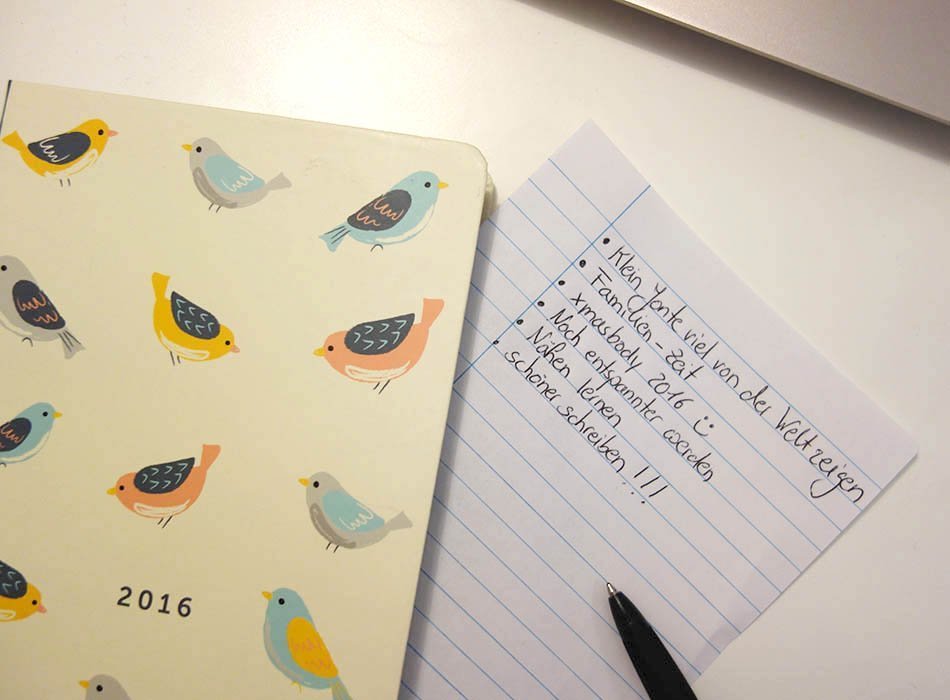 2016
• Klein Yonte viel von der Welt zeigen
• Familien-Zeit
• xmasbody 2016 :)
• Noch entspannter werden
• Nähen lernen
• schöner schreiben!!!